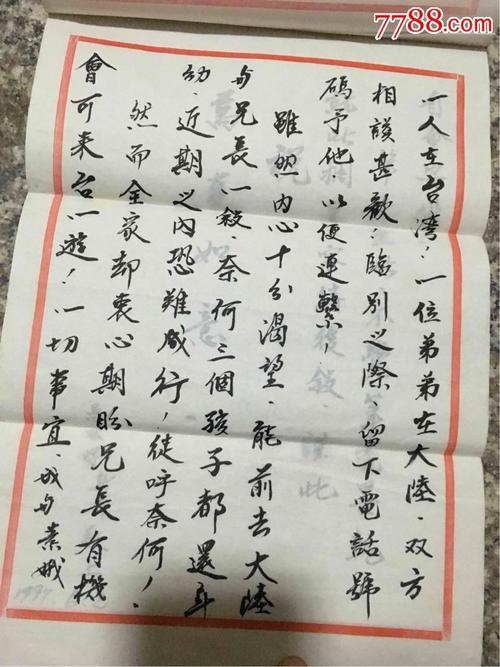 7788.com
一人在台灣！一位弟弟在大陸、双方
相談甚歡！臨別之際、留下電話號
碼予他以便連繫！
雖然內心十分渴望、能前去大陸
与兄長一敘奈何三個孩子都還年
幼、近期之內恐難成行！徒呼奈何！
然而全家却衷心期盼兄長有機
會可来台一遊！一切事宜、与素娥